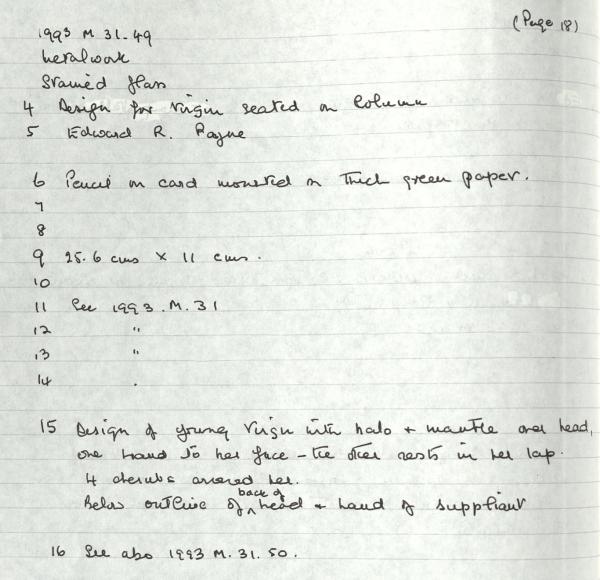 (Page 18)
1993 M 31.49
Metalwork
Stained glass
4 Design for Virgin seated on Column
5 Edward R. Payne
6 Pencil on card mounted on thick green paper.
7
8
9 25.6 cms × 11 cms.
10
11 See 1993.M.31
12 "
13 "
14 .
15 Design of young Virgin with halo + mantle over head,
one hand to her face – the other rests in her lap.
4 cherubs around her.
Below outline of back of head + hand of suppliant
16 See also 1993 M.31.50.